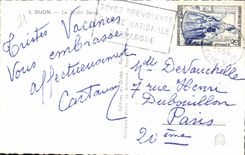 2. DIJON.
SOYEZ PREVOYANTS
NATIONALE
EPARGNE
Tristes Vacances.
Vous embrasse
affectueusement
Mlle Devauchelle
7 rue Henri
Dubouillon
Paris
20ème